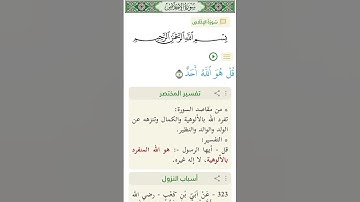 سُورَةُ الإِخْلَاصِ
سُورَةُ الإِخْلَاصِ
بِسْمِ اللَّهِ الرَّحْمَٰنِ الرَّحِيمِ
قُلْ هُوَ اللَّهُ أَحَدٌ
تفسير المختصر
* من مقاصد السورة:
تفرد الله بالألوهية والكمال وتنزهه عن
الولد والوالد والنظير.
* التفسير:
قل - أيها الرسول -: هو الله المتفرد
بالألوهية، لا إله غيره.
أسباب النزول
323 - عَنْ أُبَيِّ بْنِ كَعْبٍ - رضي الله